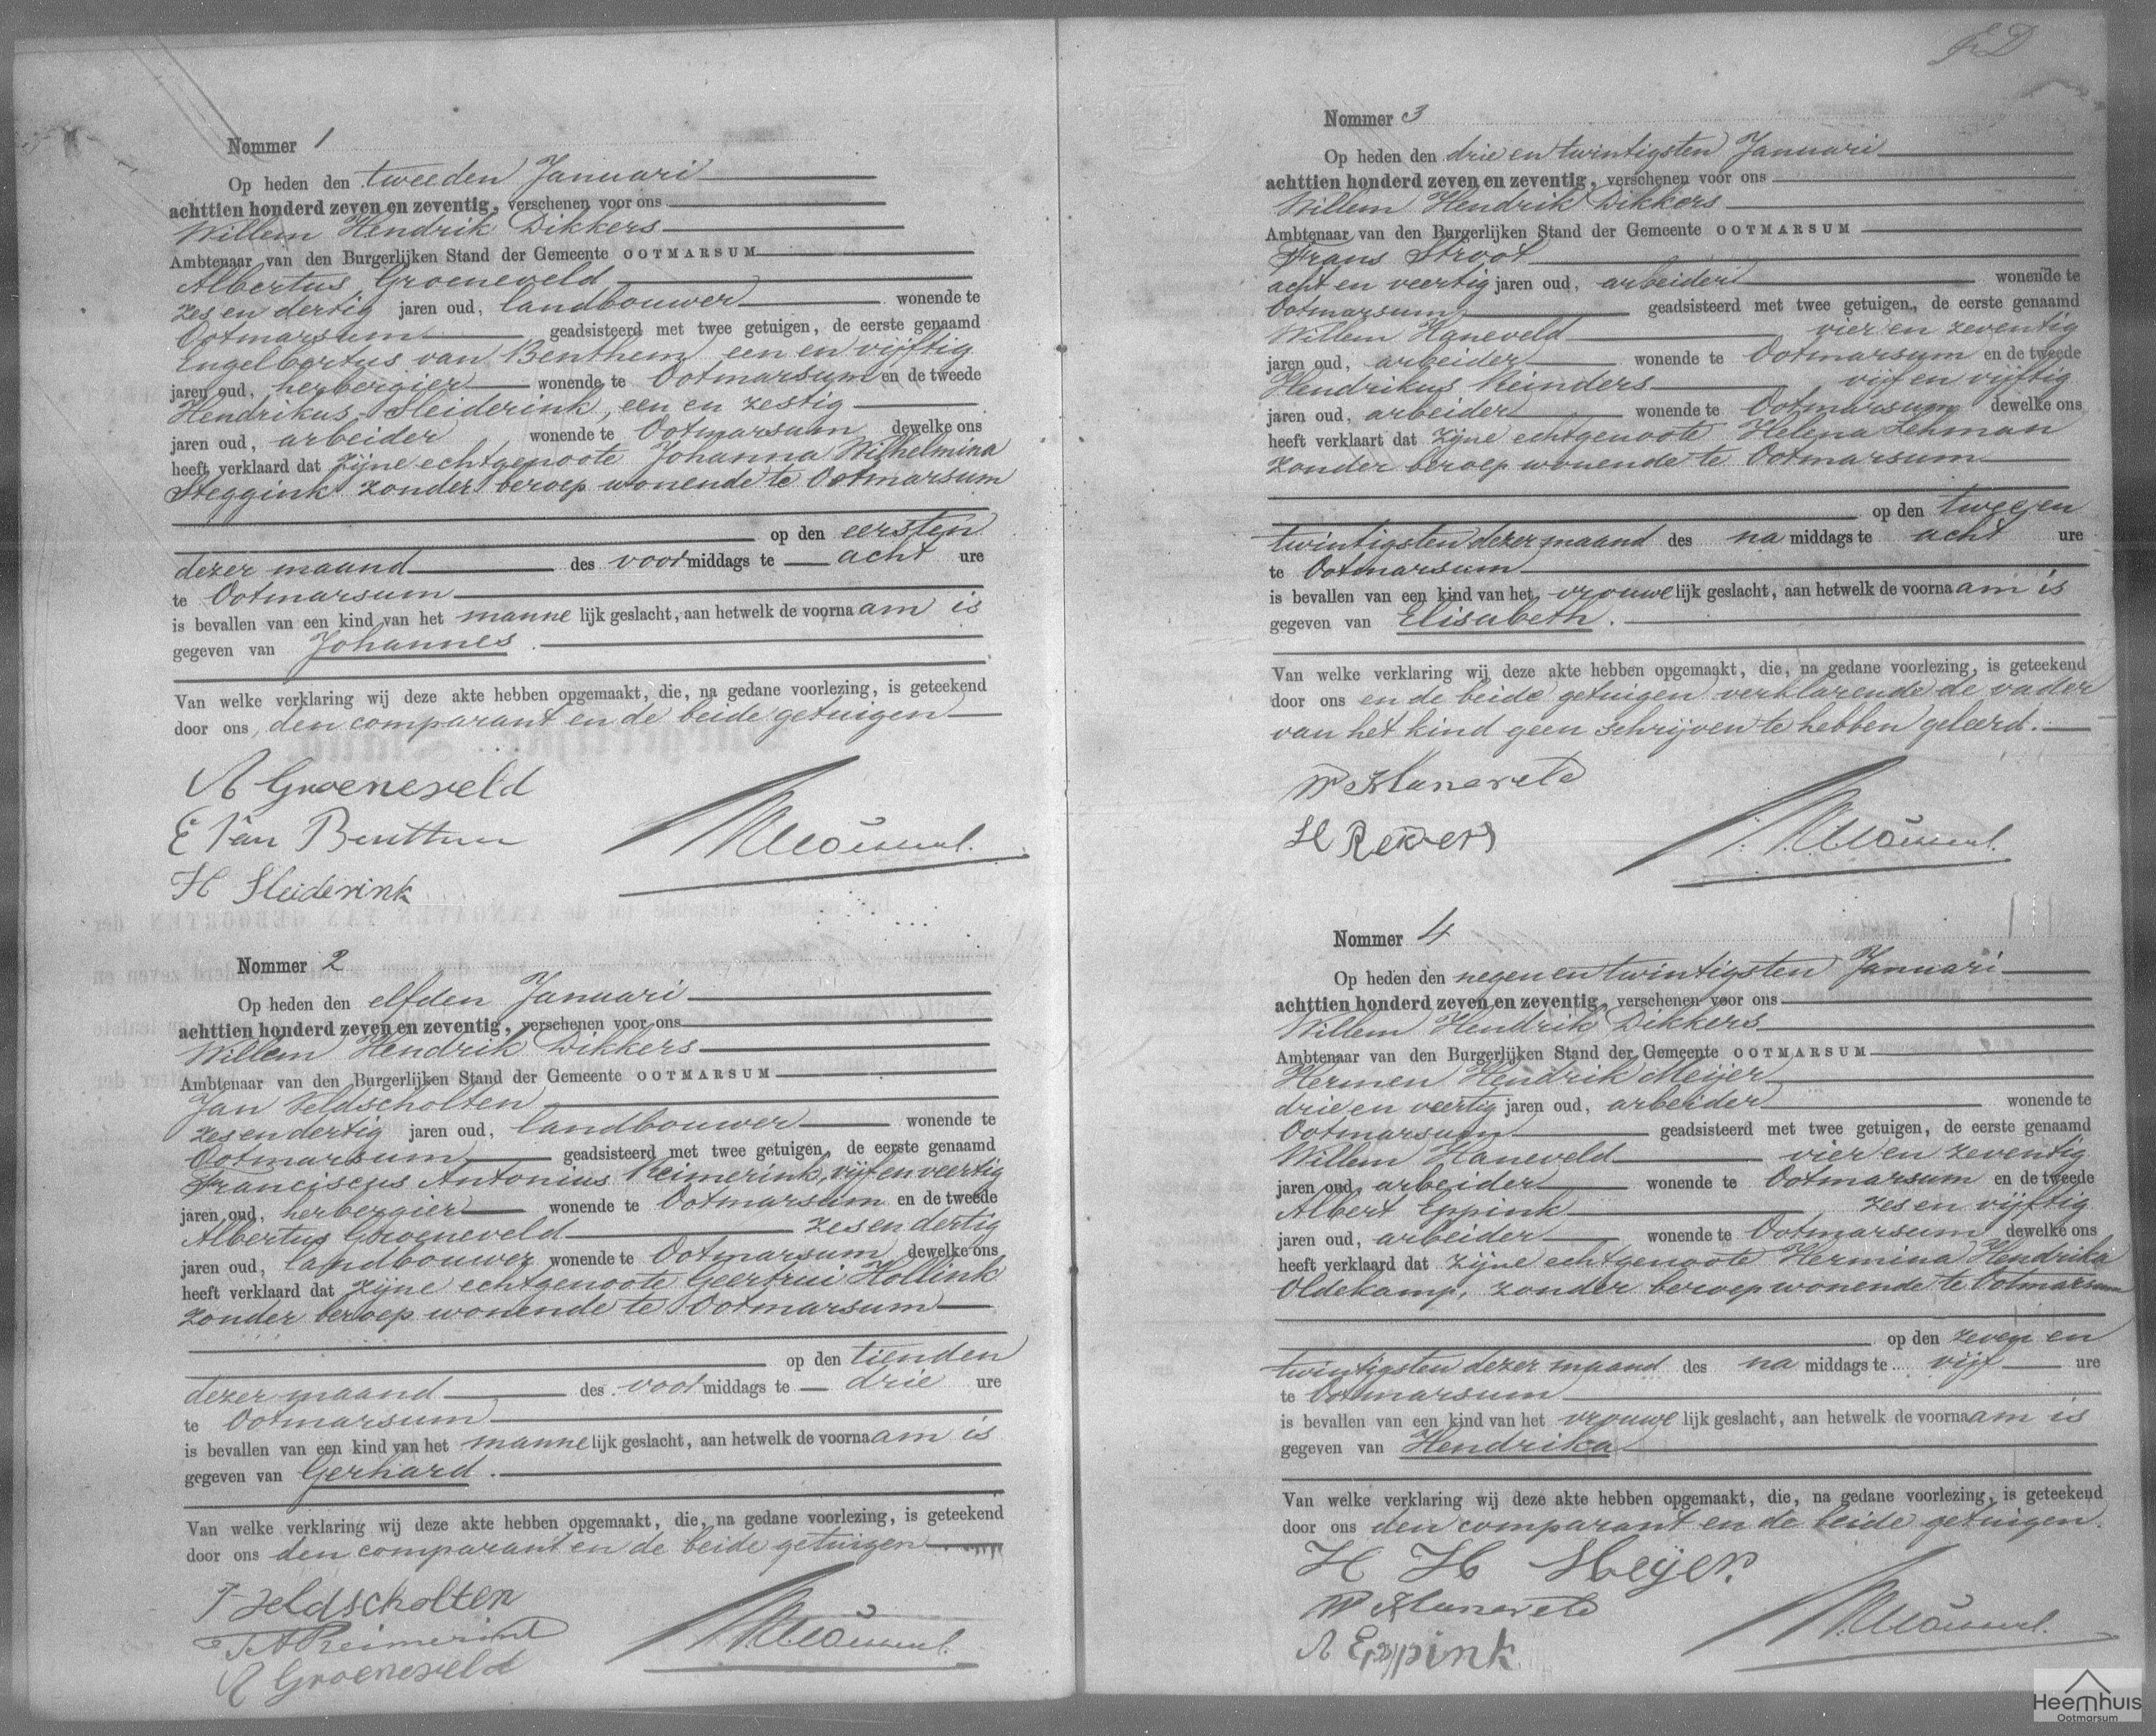 Nommer 1
Op heden den tweeden Januari
achttien honderd zeven en zeventig, verschenen voor ons
Willem Hendrik Dikkers
Ambtenaar van den Burgerlijken Stand der Gemeente OOTMARSUM
Albertus Groeneveld
zes en dertig jaren oud, landbouwer wonende te
Ootmarsum geadsisteerd met twee getuigen, de eerste genaamd
Engelbertus van Benthem een en vijftig
jaren oud, herbergier wonende te Ootmarsum en de tweede
Hendrikus Sleiderink, een en zestig
jaren oud, arbeider wonende te Ootmarsum dewelke ons
heeft verklaard dat zijne echtgenoote Johanna Wilhelmina
Steggink zonder beroep wonende te Ootmarsum
op den eersten
dezer maand des voormiddags te acht ure
te Ootmarsum
is bevallen van een kind van het mannelijk geslacht, aan hetwelk de voornaam is
gegeven van Johannes.
Van welke verklaring wij deze akte hebben opgemaakt, die, na gedane voorlezing, is geteekend
door ons, den comparant en de beide getuigen
A Groeneveld
E Van Benthem
H Sleiderink
Nommer 2
Op heden den elfden Januari
achttien honderd zeven en zeventig, verschenen voor ons
Willem Hendrik Dikkers
Ambtenaar van den Burgerlijken Stand der Gemeente OOTMARSUM
Jan Veldscholten
zes en dertig jaren oud, landbouwer wonende te
Ootmarsum geadsisteerd met twee getuigen, de eerste genaamd
Franciscus Antonius Reimerink, vijf en veertig
jaren oud, herbergier wonende te Ootmarsum en de tweede
Albertus Groeneveld zes en dertig
jaren oud, landbouwer wonende te Ootmarsum dewelke ons
heeft verklaard dat zijne echtgenoote Geertrui Hollink
zonder beroep wonende te Ootmarsum
op den tienden
dezer maand des voormiddags te drie ure
te Ootmarsum
is bevallen van een kind van het mannelijk geslacht, aan hetwelk de voornaam is
gegeven van Gerhard.
Van welke verklaring wij deze akte hebben opgemaakt, die, na gedane voorlezing, is geteekend
door ons den comparant en de beide getuigen
J Veldscholten
F A Reimerink
A Groeneveld
Nommer 3
Op heden den drie en twintigsten Januari
achttien honderd zeven en zeventig, verschenen voor ons
Willem Hendrik Dikkers
Ambtenaar van den Burgerlijken Stand der Gemeente OOTMARSUM
Frans Stroot
acht en veertig jaren oud, arbeider wonende te
Ootmarsum geadsisteerd met twee getuigen, de eerste genaamd
Willem Haneveld vier en zeventig
jaren oud, arbeider wonende te Ootmarsum en de tweede
Hendrikus Reinders vijf en vijftig
jaren oud, arbeider wonende te Ootmarsum dewelke ons
heeft verklaart dat zijne echtgenoote Helena Lehman
zonder beroep wonende te Ootmarsum
op den twee en
twintigsten dezer maand des na middags te acht ure
te Ootmarsum
is bevallen van een kind van het vrouwelijk geslacht, aan hetwelk de voornaam is
gegeven van Elisabeth.
Van welke verklaring wij deze akte hebben opgemaakt, die, na gedane voorlezing, is geteekend
door ons en de beide getuigen verklarende de vader
van het kind geen schrijven te hebben geleerd.
W Haneveld
H
Nommer 4
Op heden den negen en twintigsten Januari
achttien honderd zeven en zeventig, verschenen voor ons
Willem Hendrik Dikkers
Ambtenaar van den Burgerlijken Stand der Gemeente OOTMARSUM
Hermen Hendrik Meijer
drie en veertig jaren oud, arbeider wonende te
Ootmarsum geadsisteerd met twee getuigen, de eerste genaamd
Willem Haneveld vier en zeventig
jaren oud, arbeider wonende te Ootmarsum en de tweede
Albert Eppink zes en vijftig
jaren oud, arbeider wonende te Ootmarsum dewelke ons
heeft verklaard dat zijne echtgenoote Hermina Hendrika
Oldekamp, zonder beroep wonende te Ootmarsum
op den zeven en
twintigsten dezer maand des na middags te vijf ure
te Ootmarsum
is bevallen van een kind van het vrouwelijk geslacht, aan hetwelk de voornaam is
gegeven van Hendrika
Van welke verklaring wij deze akte hebben opgemaakt, die, na gedane voorlezing, is geteekend
door ons den comparant en de beide getuigen.
H H Meijer
W Haneveld
A Eppink
Heemhuis
Ootmarsum